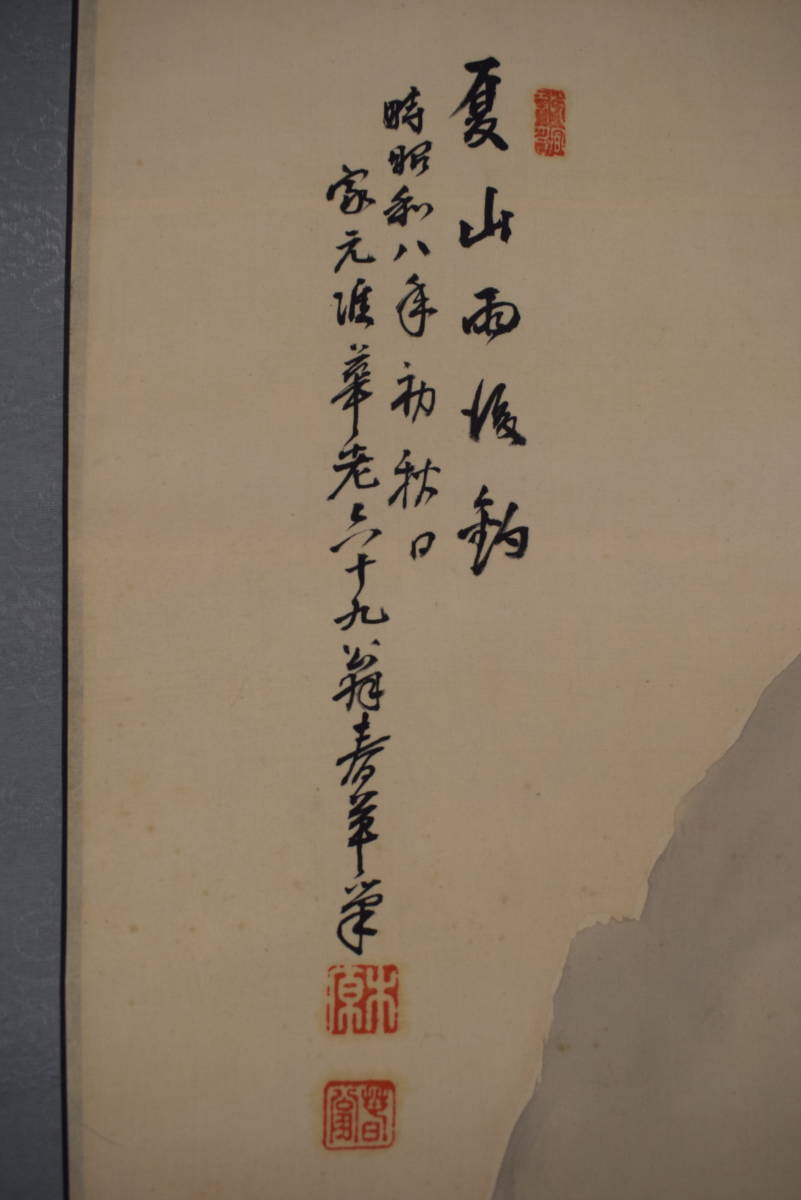 夏山雨後釣
時昭和八年初秋日
家元准華老六十九翁春華筆